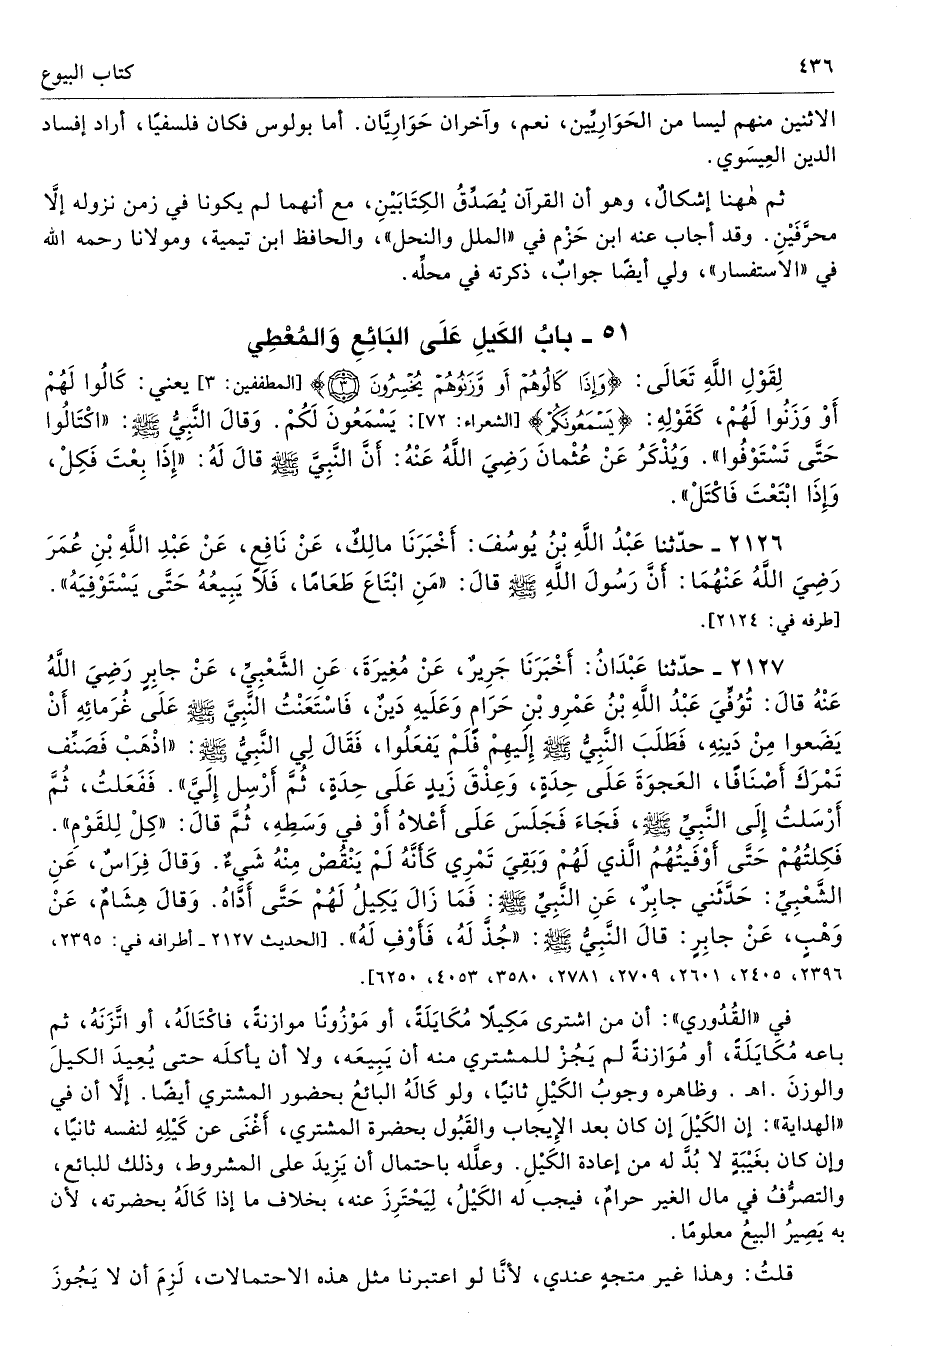 ٤٣٦
كتاب البيوع
الاثنين منهم ليسا من الحَوَارِيِّين، نعم، وآخران حَوَارِيَّان. أما بولوس فكان فلسفيًا، أراد إفساد
الدين العِيسَوي.
ثم هٰهنا إشكالٌ، وهو أن القرآن يُصَدِّقُ الكِتَابَيْنِ، مع أنهما لم يكونا في زمن نزوله إلَّا
محرَّفَيْنِ. وقد أجاب عنه ابن حَزْم في «الملل والنحل»، والحافظ ابن تيمية، ومولانا رحمه الله
في «الاستفسار»، ولي أيضًا جوابٌ، ذكرته في محلِّه.
٥١ ـ بابُ الكَيلِ عَلَى البَائِعِ وَالمُعْطِي
لِقَوْلِ اللَّهِ تَعَالَى: ﴿وَإِذَا كَالُوهُمْ أَو وَّزَنُوهُمْ يُخْسِرُونَ ٣﴾ [المطففين: ٣] يعني: كَالُوا لَهُمْ
أَوْ وَزَنُوا لَهُمْ، كَقَوْلِهِ: ﴿يَسْمَعُونَكُمْ﴾ [الشعراء: ٧٢]: يَسْمَعُونَ لَكُمْ. وَقَالَ النَّبِيُّ ﷺ: «اكْتَالُوا
حَتَّى تَسْتَوْفُوا». وَيُذْكَرُ عَنْ عُثْمانَ رَضِيَ اللَّهُ عَنْهُ: أَنَّ النَّبِيَّ ﷺ قالَ لَهُ: «إِذَا بِعْتَ فَكِلْ،
وَإِذَا ابْتَعْتَ فَاكْتَلْ».
٢١٢٦ ـ حدّثنا عَبْدُ اللَّهِ بْنُ يُوسُفَ: أَخْبَرَنَا مالِكٌ، عَنْ نَافِعٍ، عَنْ عَبْدِ اللَّهِ بْنِ عُمَرَ
رَضِيَ اللَّهُ عَنْهُمَا: أَنَّ رَسُولَ اللَّهِ ﷺ قالَ: «مَنِ ابْتَاعَ طَعَامًا، فَلَا يَبِيعُهُ حَتَّى يَسْتَوْفِيَهُ».
[طرفه في: ٢١٢٤].
٢١٢٧ ـ حدّثنا عَبْدَانُ: أَخْبَرَنَا جَرِيرٌ، عَنْ مُغِيرَةَ، عَنِ الشَّعْبِيِّ، عَنْ جابِرٍ رَضِيَ اللَّهُ
عَنْهُ قالَ: تُوُفِّيَ عَبْدُ اللَّهِ بْنُ عَمْرِو بْنِ حَرَامٍ وَعَلَيهِ دَينٌ، فَاسْتَعَنْتُ النَّبِيَّ ﷺ عَلَى غُرَمائِهِ أَنْ
يَضَعوا مِنْ دَينِهِ، فَطَلَبَ النَّبِيُّ ﷺ إِلَيهِمْ فَلَمْ يَفعَلُوا، فَقَالَ لِي النَّبِيُّ ﷺ: «اذْهَبْ فَصَنِّف
تَمْرَكَ أَصْنَافًا، العَجوَةَ عَلَى حِدَةٍ، وَعِذْقَ زَيدٍ عَلَى حِدَةٍ، ثُمَّ أَرْسِل إِلَيَّ». فَفَعَلتُ، ثُمَّ
أَرْسَلتُ إِلَى النَّبِيِّ ﷺ، فَجَاءَ فَجَلَسَ عَلَى أَعْلَاهُ أَوْ في وَسَطِهِ، ثُمَّ قالَ: «كِلْ لِلقَوْمِ».
فَكِلتُهُمْ حَتَّى أَوْفَيتُهُمُ الَّذي لَهُمْ وَبَقِيَ تَمْرِي كَأَنَّهُ لَمْ يَنْقُصْ مِنْهُ شَيءٌ. وَقالَ فِرَاسٌ، عَنِ
الشَّعْبِيِّ: حَدَّثَني جابِرٌ، عَنِ النَّبِيِّ ﷺ: فَمَا زَالَ يَكِيلُ لَهُمْ حَتَّى أَدَّاهُ. وَقالَ هِشَام، عَنْ
وَهْبٍ، عَنْ جابِرٍ: قالَ النَّبِيُّ ﷺ: «جُذَّ لَهُ، فَأَوْفِ لَهُ». [الحديث ٢١٢٧ ـ أطرافه في: ٢٣٩٥،
٢٣٩٦، ٢٤٠٥، ٢٦٠١، ٢٧٠٩، ٢٧٨١، ٣٥٨٠، ٤٠٥٣، ٦٢٥٠].
في «القُدُوري»: أن من اشترى مَكِيلًا مُكَايَلَةً، أو مَوْزُونًا موازنةً، فاكْتَالَهُ، أو اتَّزَنَهُ، ثم
باعه مُكَايَلَةً، أو مُوَازنةً لم يَجُزْ للمشتري منه أن يَبِيعَه، ولا أن يأكلَه حتى يُعِيدَ الكيلَ
والوزنَ .اهـ . وظاهره وجوبُ الكَيْلِ ثانيًا، ولو كَالَهُ البائعُ بحضور المشتري أيضًا. إلَّا أن في
«الهداية»: إن الكَيْلَ إن كان بعد الإِيجاب والقَبُول بحضرة المشتري، أَغْنَى عن كَيْلِهِ لنفسه ثانيًا،
وإن كان بغَيْبَةٍ لا بُدَّ له من إعادة الكَيْلِ. وعلَّله باحتمال أن يَزِيدَ على المشروط، وذلك للبائع،
والتصرُّفُ في مال الغير حرامٌ، فيجب له الكَيْلُ، لِيَحْتَرِزَ عنه، بخلاف ما إذا كَالَهُ بحضرته، لأن
به يَصِيرُ البيعُ معلومًا.
قلتُ: وهذا غير متجهٍ عندي، لأنَّا لو اعتبرنا مثل هذه الاحتمالات، لَزِمَ أن لا يَجُوزَ